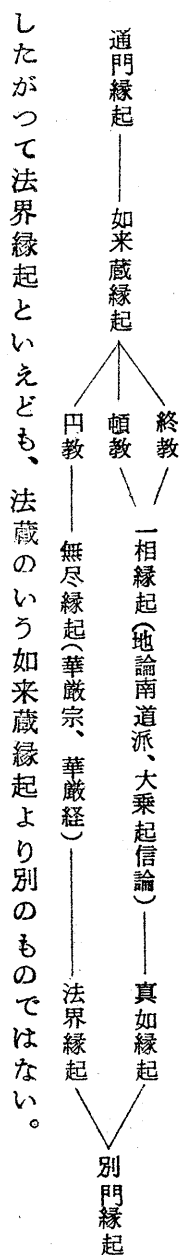 通門縁起――如来蔵縁起
終教
頓教
一相縁起(地論南道派、大乗起信論)――真如縁起
円教――無尽縁起(華厳宗、華厳経)――法界縁起
別門縁起
したがつて法界縁起といえども、法蔵のいう如来蔵縁起より別のものではない。